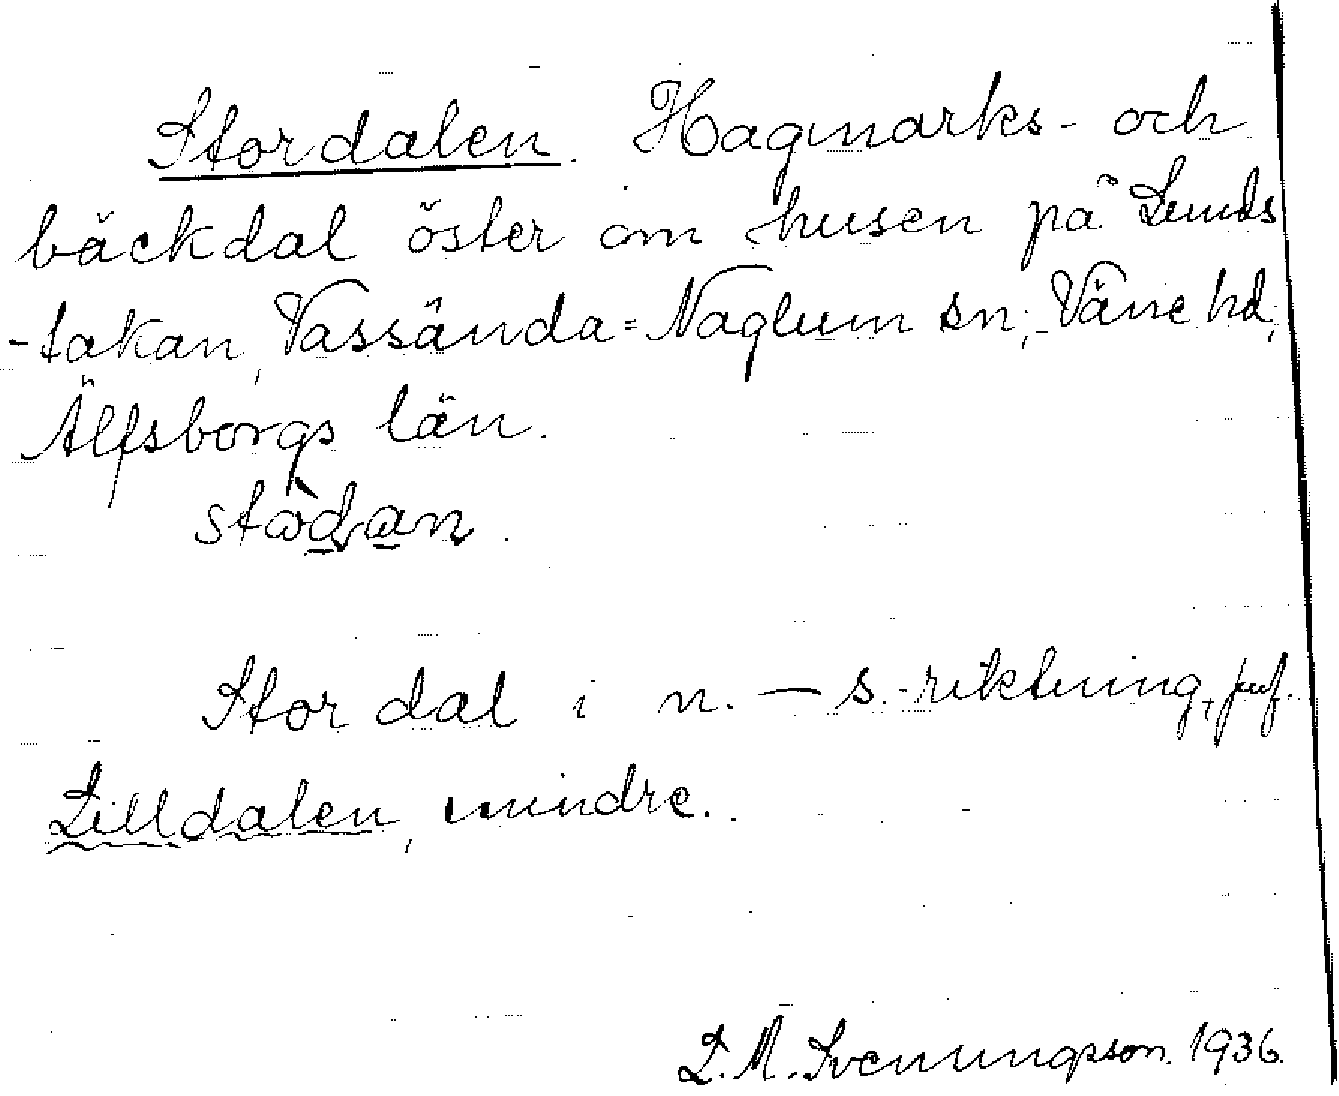 Stordalen. Hagmarks- och
bäckdal öster om husen på Lunds
-takan, Vassända=Naglum sn; Väne hd,
Älfsborgs län.
Stor dal i n. — s.-riktning, jmf.
Lilldalen, mindre.
L. M. Svenungsson. 1936.